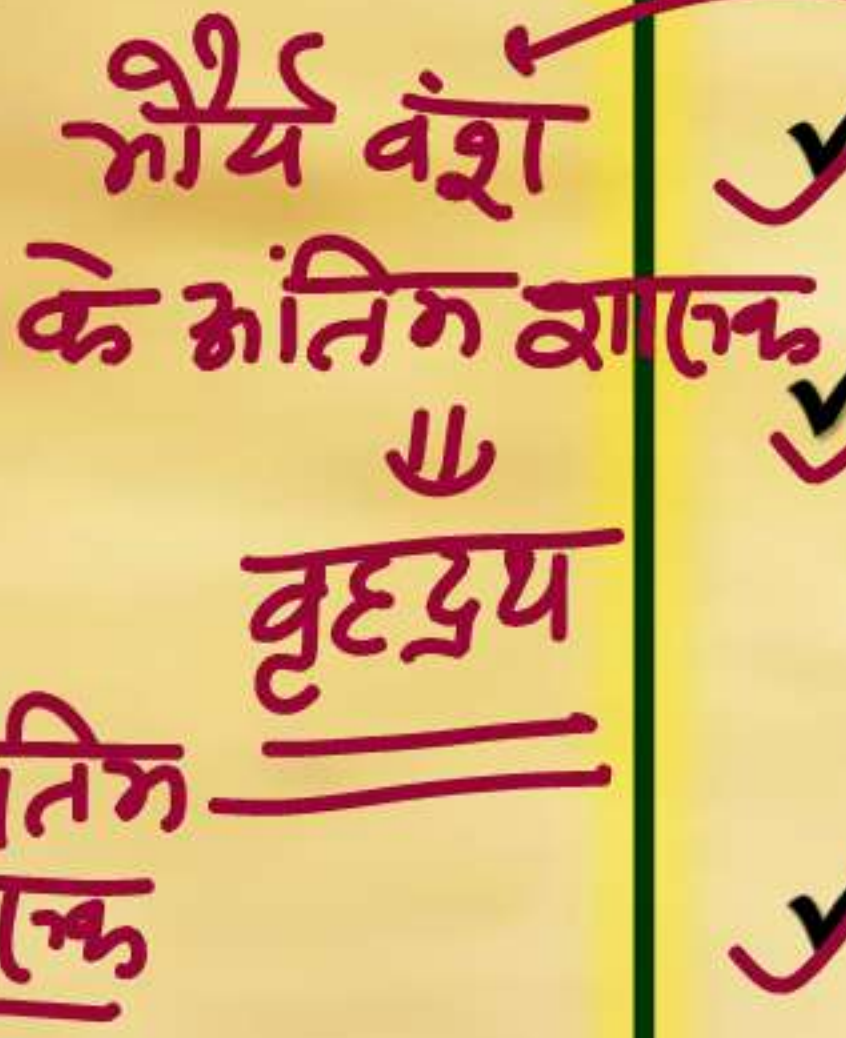 मौर्य वंश
के अंतिम शासक
वृहद्रय
तिम
क